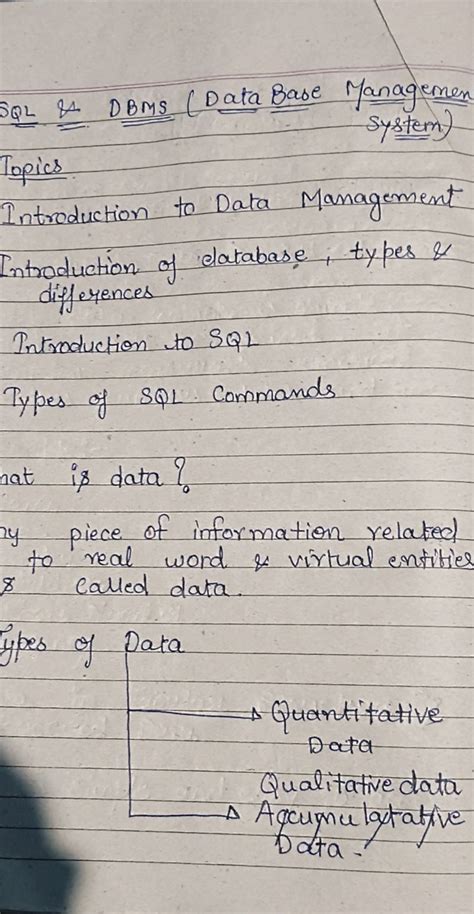 SQL & DBMS (Data Base Managemen
System)
Topics
Introduction to Data Management
Introduction of database, types &
differences
Introduction to SQL
Types of SQL Commands
hat is data?
ny piece of information related
to real word & virtual entities
is called data.
Types of Data
Quantitative
Data
Qualitative data
Data.